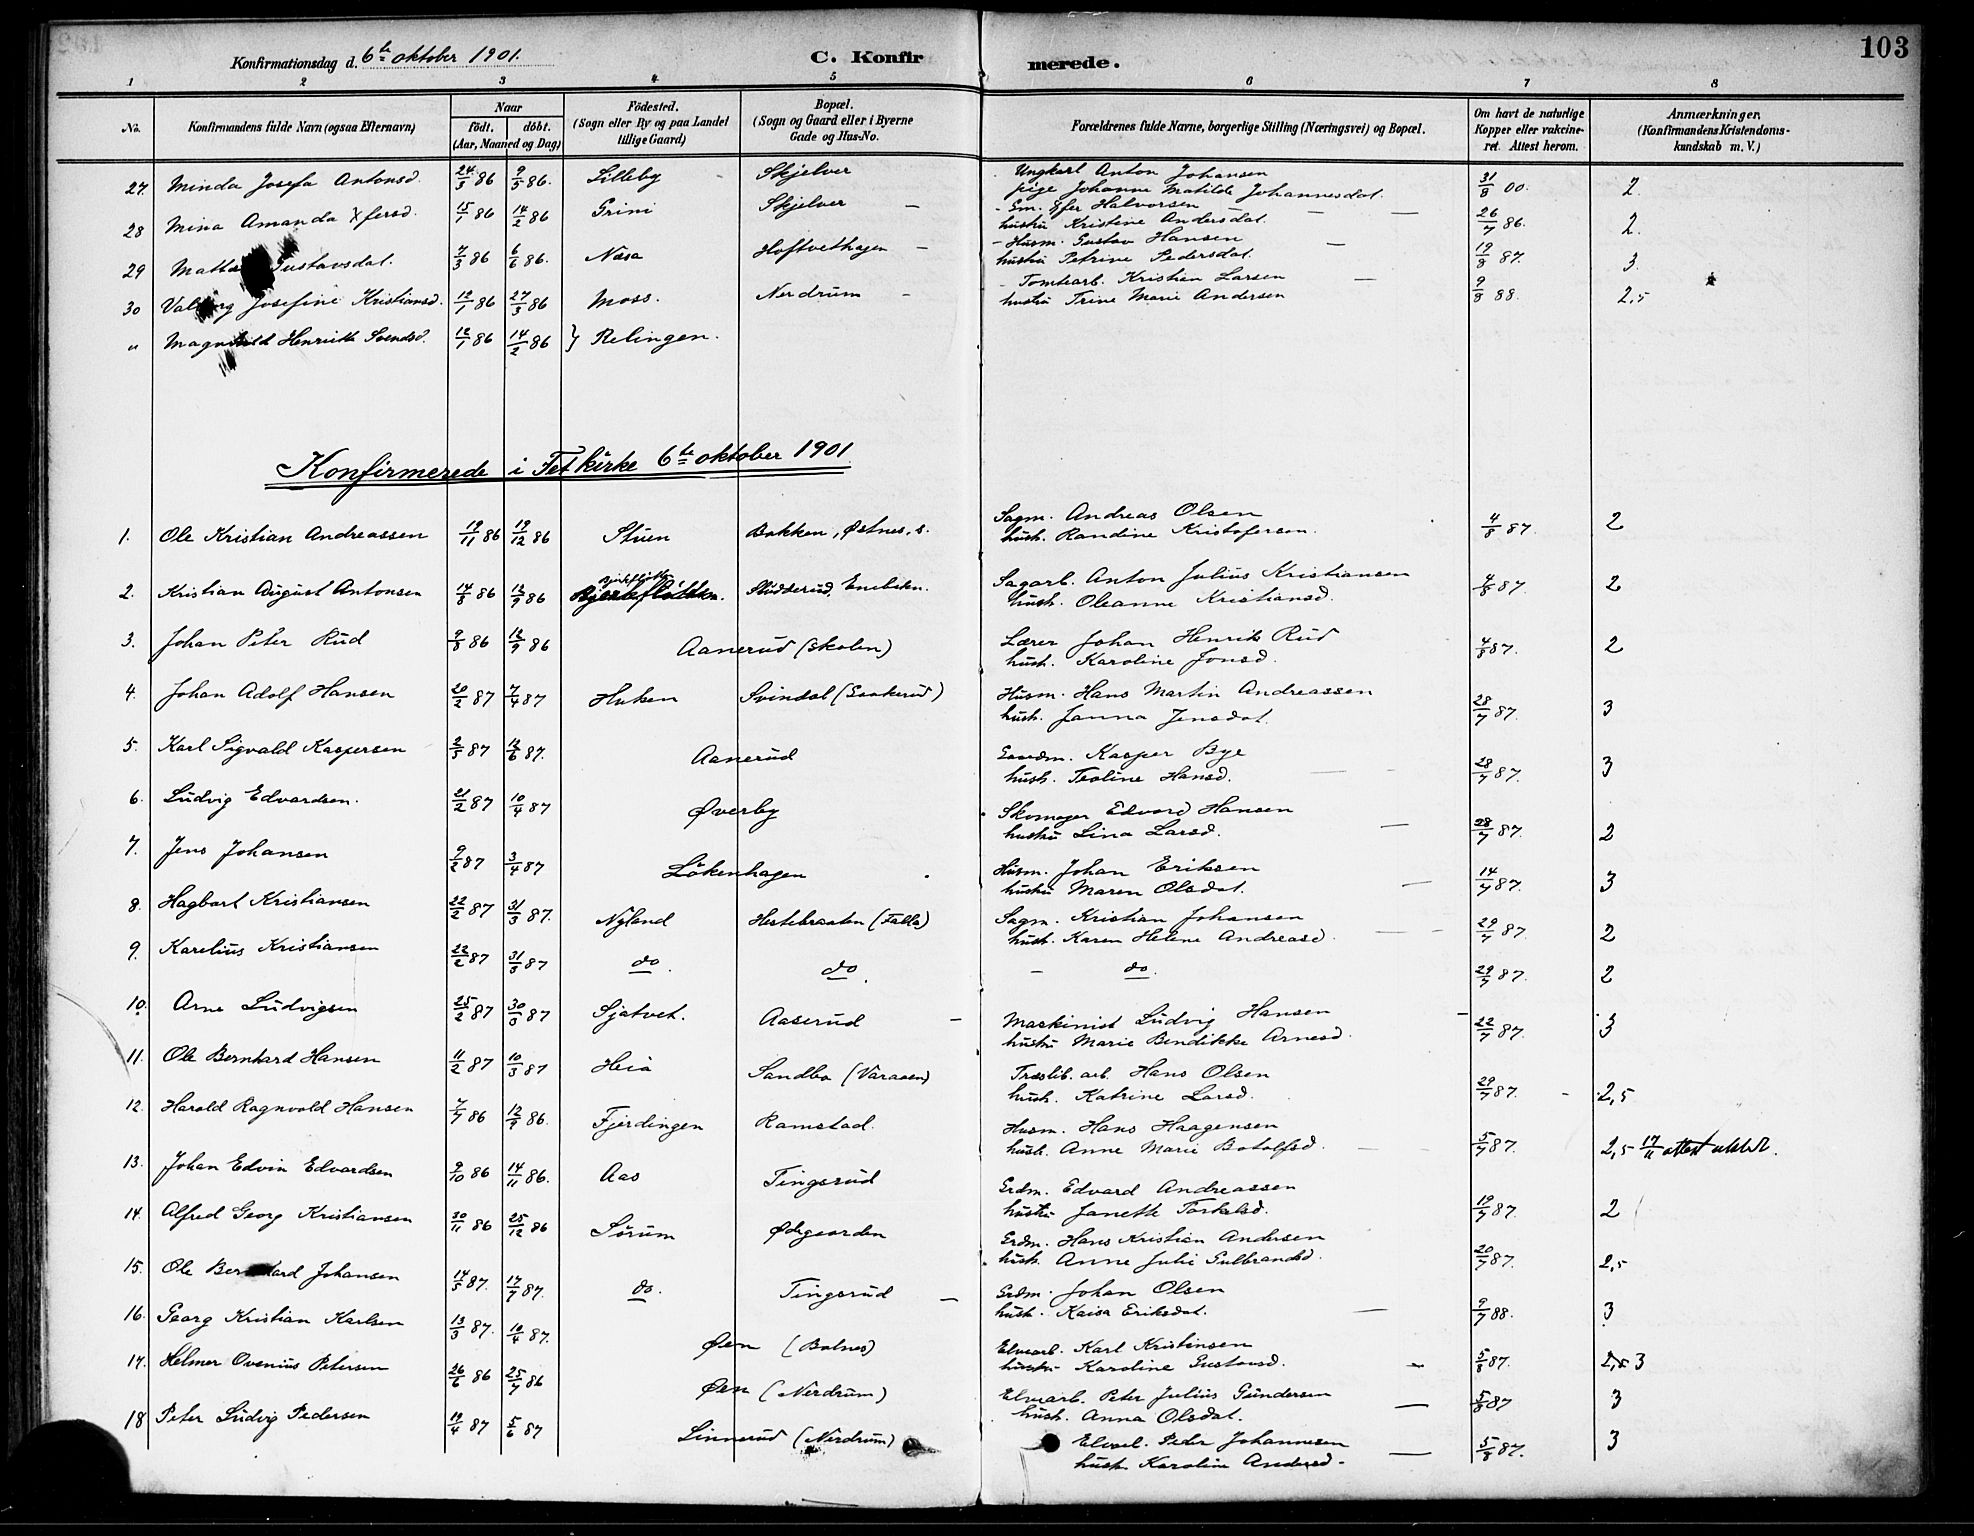 103
Konfirmationsdag d. 6te oktober 1901.
C. Konfirmerede.
1 2 3 4 5 6 7 8
No. Konfirmandens fulde Navn (ogsaa Efternavn) Naar födt. döbt. (Aar, Maaned og Dag) Födested. (Sogn eller By og paa Landet tillige Gaard) Bopæl. (Sogn og Gaard eller i Byerne Gade og Hus-No. Forældrenes fulde Navne, borgerlige Stilling (Næringsvei) og Bopæl. Om havt de naturlige Kopper eller vakcineret. Attest herom. Anmærkninger. (Konfirmandens Kristendomskundskab m. V.)
27. Minda Josefa Antonsd. 24/3 86 9/5 86. Lilleby Skjelver Ungkarl Anton Johansen 31/8 00. 2.
pige Johanne Matilde Johannesdat.
28 Mina Amanda Xfersd. 15/1 86 14/2 86 Grini Skjelver Gm. Xfer Halvorsen 26/7 86. 2.
hustru Kristine Andersdat.
29 Gustavsdat. 7/3 86 6/6 86. Næsa Hoftvethagen Husm. Gustav Hansen 19/8 87. 3.
hustru Petrine Pedersdat.
30 Valborg Josefine Kristiansd. 12/1 86 27/3 86 Moss. Nerdrum Tomtearb. Kristian Larsen 9/8 88. 2,5
hustru Trine Marie Andersen
" Magnhild Henriette Svendsd. 12/1 86 14/2 86 } Relingen.
Konfirmerede i Fet kirke 6te oktober 1901
1. Ole Kristian Andreassen 19/11 86 19/12 86 Stuen Bakken, Østnes, s. Sagm. Andreas Olsen 4/8 87. 2
hust. Randine Kristofersen.
2. Kristian August Antonsen 14/8 86 12/9 86 Studserud, Enebekn. Sagarb. Anton Julius Kristiansen 4/8 87. 2
hust. Oleanne Kristiansd.
3. Johan Peter Rud 9/8 86 12/9 86 Aanerud (skolen) Lærer Johan Henrik Rud 4/8 87. 2
hust. Karoline Jonsd.
4. Johan Adolf Hansen 20/2 87 7/4 87 Huken Svindal Husm. Hans Martin Andreassen 28/7 87. 3
hust. Janna Jensdat.
5. Karl Sigvald Kaspersen 2/5 87 12/6 87. Aanerud Gaardm. Kasper Bye 28/7 87. 3
hust. Teoline Hansd.
6. Ludvig Edvardsen. 21/2 87 10/4 87 Øverby Skomager Edvard Hansen 28/7 87. 2
hustru Lina Larsd.
7. Jens Johansen 9/2 87 3/4 87 Lökenhagen Husm. Johan Eriksen 14/7 87. 3
hustru Maren Olsdat.
8. Hagbart Kristiansen 22/2 87 31/3 87. Nyland Hestebraaten (Falla) Sagm. Kristian Johansen 29/7 87. 2
hust. Karen Helene Andreasd.
9. Karelius Kristiansen 22/2 87 31/3 87 do. do. – do. 29/7 87. 2
10. Arne Ludvigsen 25/2 87 30/3 87 Sjatvet. Aaserud Maskinist Ludvig Hansen 22/7 87. 3
hustru Marie Bendikke Arnesd.
11. Ole Bernhard Hansen 11/2 87 10/3 87 Heia Sandbo (Varaaen) Træslib. arb. Hans Olsen 29/7 87. 2,5
hust. Katrine Larsd.
12. Harald Ragnvald Hansen 7/7 86 12/9 86. Fjerdingen Ramstad. Husm. Hans Haagensen 5/7 87. 2,5 17/11 attest utstedt.
hust. Anne Marie Botolfsd.
13. Johan Edvin Edvardsen 9/10 86 14/11 86. Aas Tingsrud Grdm. Edvard Andreassen 19/7 87. 2
hustru Janette Torkelsd.
14. Alfred Georg Kristiansen 30/11 86 25/12 86 Sörum Ødegaarden Grdm. Hans Kristian Andersen 20/7 87. 2,5
hust. Anne Julie Gulbrandsd.
15. Ole Bernhard Johansen 14/5 87. 17/7 87. do. Tingsrud Grdm. Johan Olsen 9/7 88. 3
hust. Kaisa Eriksdat.
16. Georg Kristian Karlsen 13/3 87. 10/4 87. Øen (Balnes) Elvearb. Karl Kristinsen 5/8 87. 2,5 3
hustru Karoline Gustavsd.
17. Helmer Ovenius Petersen 26/6 86 25/7 86 Øen (Nerdrum) Elvearb. Peter Julius Gundersen 5/8 87 3
hust. Anna Olsdat.
18 Peter Ludvig Pedersen 19/4 87 5/6 87 Linnerud (Nerdrum) Peder Johannesen 5/8 87. 3
hust. Karoline Andersd.